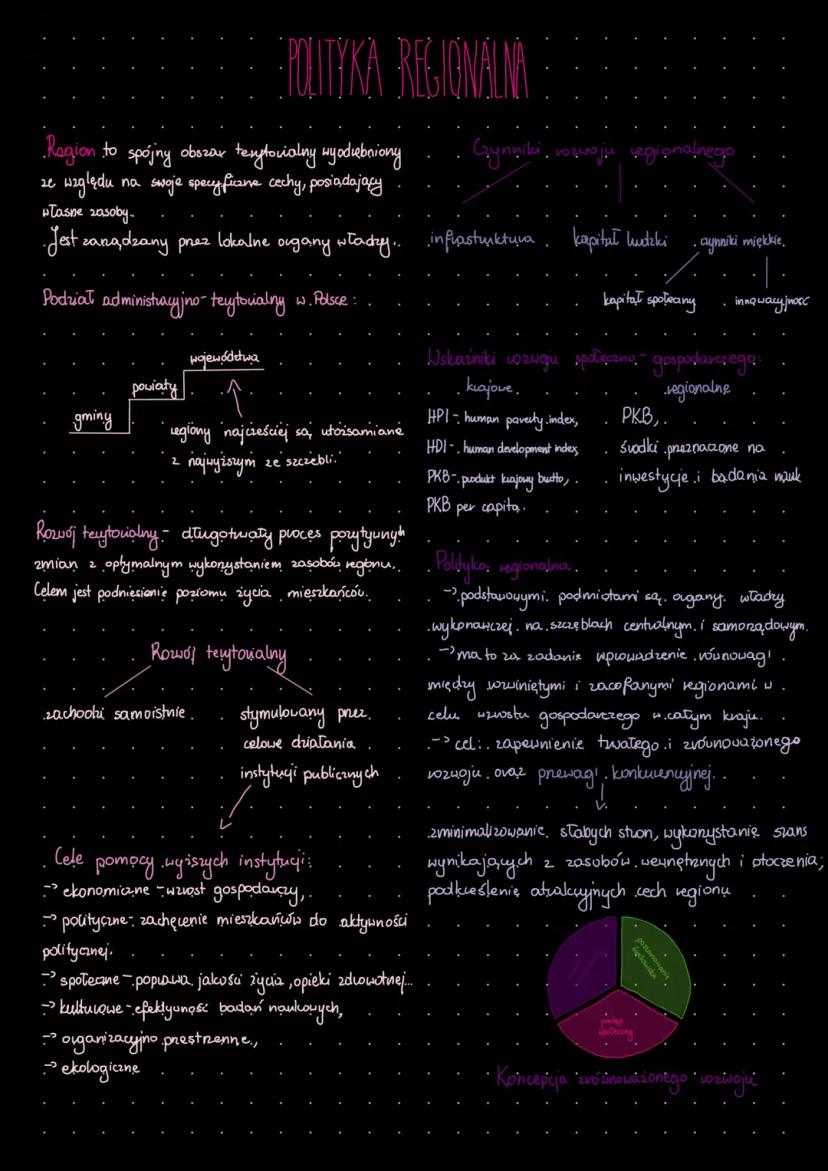 POLITYKA REGIONALNA
Region to spójny obszar terytorialny wyodrębniony
ze względu na swoje specyficzne cechy, posiadający
własne zasoby.
Jest zarządzany przez lokalne organy władzy.
Podział administracyjno-terytorialny w Polsce:
województwa
powiaty
gminy
regiony najcześciej są utożsamiane
z najwyższym ze szczebli.
Rozwój terytorialny - długotrwały proces pozytywnych
zmian z optymalnym wykorzystaniem zasobów regionu.
Celem jest podniesienie poziomu życia mieszkańców.
Rozwój terytorialny
zachodzi samoistnie
stymulowany przez
celowe działania
instytucji publicznych
Cele pomocy wyższych instytucji:
-> ekonomiczne - wzrost gospodarczy,
-> polityczne - zachęcenie mieszkańców do aktywności
politycznej.
-> społeczne - poprawa jakości życia, opieki zdrowotnej...
-> kulturowe - efektywność badań naukowych,
-> organizacyjno przestrzenne,
-> ekologiczne
Czynniki rozwoju regionalnego
infrastruktura kapitał ludzki czynniki miękkie
kapitał społeczny innowacyjność
Wskaźniki rozwoju społeczno-gospodarczego:
krajowe
HPI - human poverty index,
HDI - human development index
PKB - produkt krajowy brutto,
PKB per capita.
regionalne
PKB,
środki przeznaczone na
inwestycje i badania nauk
Polityka regionalna
-> podstawowymi podmiotami są organy władzy
wykonawczej na szczeblach centralnym i samorządowym.
-> ma to za zadanie wprowadzenie równowagi
między rozwiniętymi i zacofanymi regionami w
celu wzrostu gospodarczego w całym kraju.
-> cel: zapewnienie trwałego i zrównoważonego
rozwoju oraz przewagi konkurencyjnej.
zminimalizowanie słabych stron, wykorzystanie szans
wynikających z zasobów wewnętrznych i otoczenia,
podkreślenie atrakcyjnych cech regionu
postęp
społeczny
Koncepcja zrównoważonego rozwoju